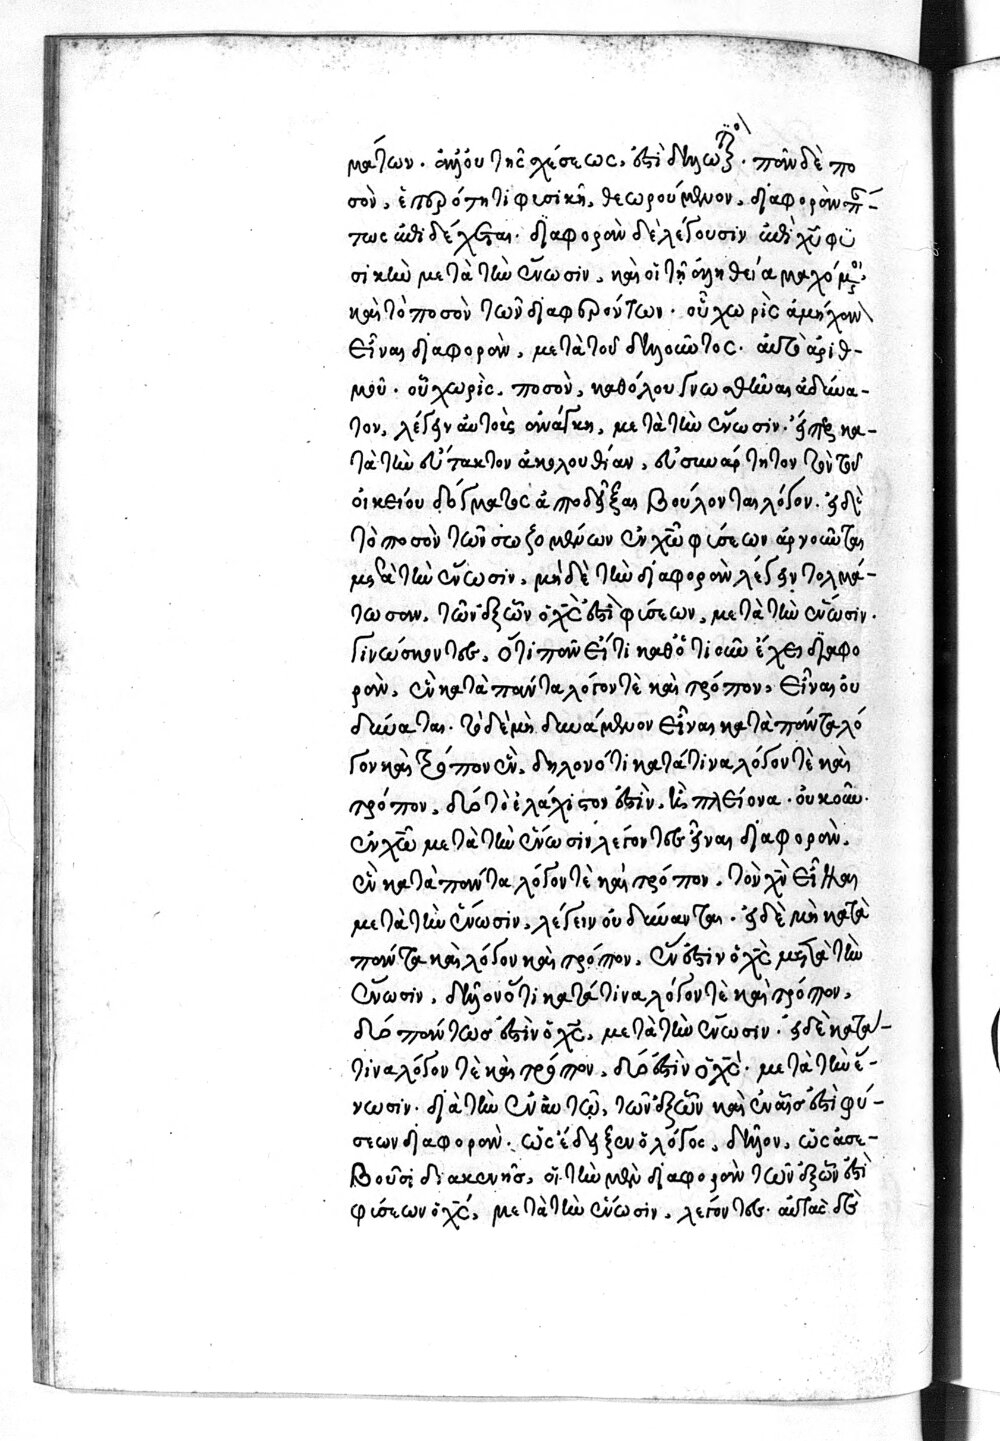 μάτων. ἀλλ' οὐ τῆς σχέσεως, ἐστὶ δηλωτικός. πᾶν δὲ πο
σὸν, ἑτερότητι φυσικῆ, θεωρούμενον, διαφορὰν πάν-
τως ἐπιδέχεται. διαφορὰν δὲ λέγουσιν ἐπὶ χυ φυ
σικὴν μετὰ τὴν ἕνωσιν, καὶ οἱ τῆ ἀληθεία μαχόμενοι,
καὶ τὸ ποσὸν τῶν διαφερόντων. οὗ χωρὶς ἀμήχανον
εἶναι διαφορὰν, μετὰ τοῦ δηλοῦντος. αὐτὸ ἀριθ-
μοῦ. οὗ χωρὶς, ποσὸν, καθόλου γνωσθῆναι ἀδύνα-
τον, λέγειν αὐτοὺς ἀνάγκη, μετὰ τὴν ἕνωσιν. εἴπερ κα-
τὰ τὴν εὔτακτον ἀκολουθίαν, εὐσυνάρτητον τὸν τοῦ
οἰκείου δόγματος ἀποδεῖξαι βούλονται λόγον. εἰ δὲ
τὸ ποσὸν τῶν σωζομένων ἐν χῶ φύσεων ἀρνοῦνται
μετὰ τὴν ἕνωσιν, μηδὲ τὴν διαφορὰν λέγειν τολμά-
τωσαν, τῶν ἐξ ὧν ὁ χς ἐστὶ φύσεων, μετὰ τὴν ἕνωσιν.
γινώσκοντες, ὅτι πᾶν εἴτι καθό τι οὖν ἔχει διαφο
ρὰν, ἓν κατὰ πάντα λόγον τὲ καὶ τρόπον, εἶναι οὐ
δύναται. τὸ δὲ μὴ δυνάμενον εἶναι κατὰ πάντα λό
γον καὶ τρόπον ἓν, δηλονότι κατά τινα λόγον τὲ καὶ
τρόπον, δύο τὸ ἐλάχιστον ἐστὶν, ἢ πλείονα. οὐκοῦν.
ἐν χῶ μετὰ τὴν ἕνωσιν λέγοντες εἶναι διαφορὰν,
ἓν κατὰ πάντα λόγον τὲ καὶ τρόπον, τὸν χν εἶναι
μετὰ τὴν ἕνωσιν, λέγειν οὐ δύνανται. εἰ δὲ μὴ κατὰ
πάντα καὶ λόγον καὶ τρόπον, ἕν ἐστιν ὁ χς μετὰ τὴν
ἕνωσιν, δῆλον ὅτι κατά τινα λόγον τὲ καὶ τρόπον,
δύο πάντως ἐστὶν ὁ χς, μετὰ τὴν ἕνωσιν. εἰ δὲ κατά
τινα λόγον τὲ καὶ τρόπον, δύο ἐστὶν ὁ χς. μετὰ τὴν ἕ-
νωσιν. διὰ τὴν ἐν αὐτῶ, τῶν ἐξ ὧν καὶ ἐν αἷς ἐστὶ φύ-
σεων διαφορὰν. ὡς ἔδειξεν ὁ λόγος, δῆλον, ὡς ἀσε-
βοῦσι διακενῆς, οἱ τὴν μὲν διαφορὰν τῶν ἐξ ὧν ἐστὶ
φύσεων ὁ χς, μετὰ τὴν ἕνωσιν, λέγοντες. αὐτὰς δὲ